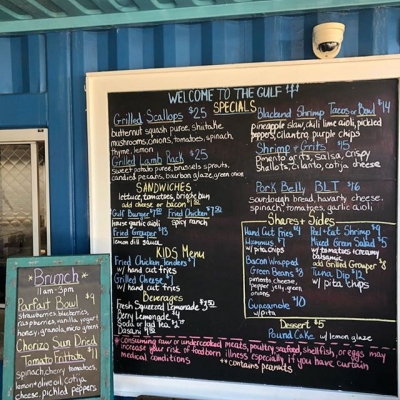 WELCOME TO THE GULF
SPECIALS
Grilled Scallops $25
butternut squash puree, shiitake
mushrooms, onions, tomatoes, spinach,
thyme, lemon
Grilled Lamb Rack $25
sweet potato puree, brussels sprouts,
candied pecans, bourbon glaze, green onion
SANDWICHES
lettuce, tomatoes, brioche bun
add cheese or bacon
Gulf Burger
house garlic aioli
Fried Chicken
spicy ranch
Fried Grouper $13
KIDS MENU
Fried Chicken Tenders
w/ hand cut fries
Grilled Cheese
w/ hand cut fries
Beverages
Fresh Squeezed Lemonade
Berry Lemonade $4
Soda or Iced tea
Dasani
Blackend Shrimp Tacos or Bowl $14
pineapple slaw, chili lime aioli, pickled
peppers, cilantro, purple chips
Shrimp + Grits $15
pimento grits, salsa, crispy
Shallots, cilantro, cotija cheese
Pork Belly BLT $16
sourdough bread, havarty cheese,
spinach, tomatoes, garlic aioli
Shares + Sides
Hand Cut Fries $4
Hummus
w/ pita chips
Bacon Wrapped
Green Beans $8
pimento cheese,
pepper jelly, green
onions
Guacamole $10
w/ pita
Peel + Eat Shrimp
Mixed Green Salad $5
w/ tomatoes + creamy
balsamic
add Grilled Grouper $8
Tuna Dip $12
w/ pita chips
Dessert $5
Pound Cake w/ lemon glaze
* consuming raw or undercooked meats, poultry, seafood, shellfish, or eggs may
increase your risk of foodborn illness especially if you have curtain
medical conditions
** contains peanuts
*Brunch*
11am-3pm
Parfait Bowl $9
strawberries, blueberries,
raspberries, vanilla yogurt
honey, granola, micro green
Chorizo Sun Dried
Tomato Frittata $11
spinach, cherry tomatoes,
lemon + olive oil, cotija
cheese, pickled peppers